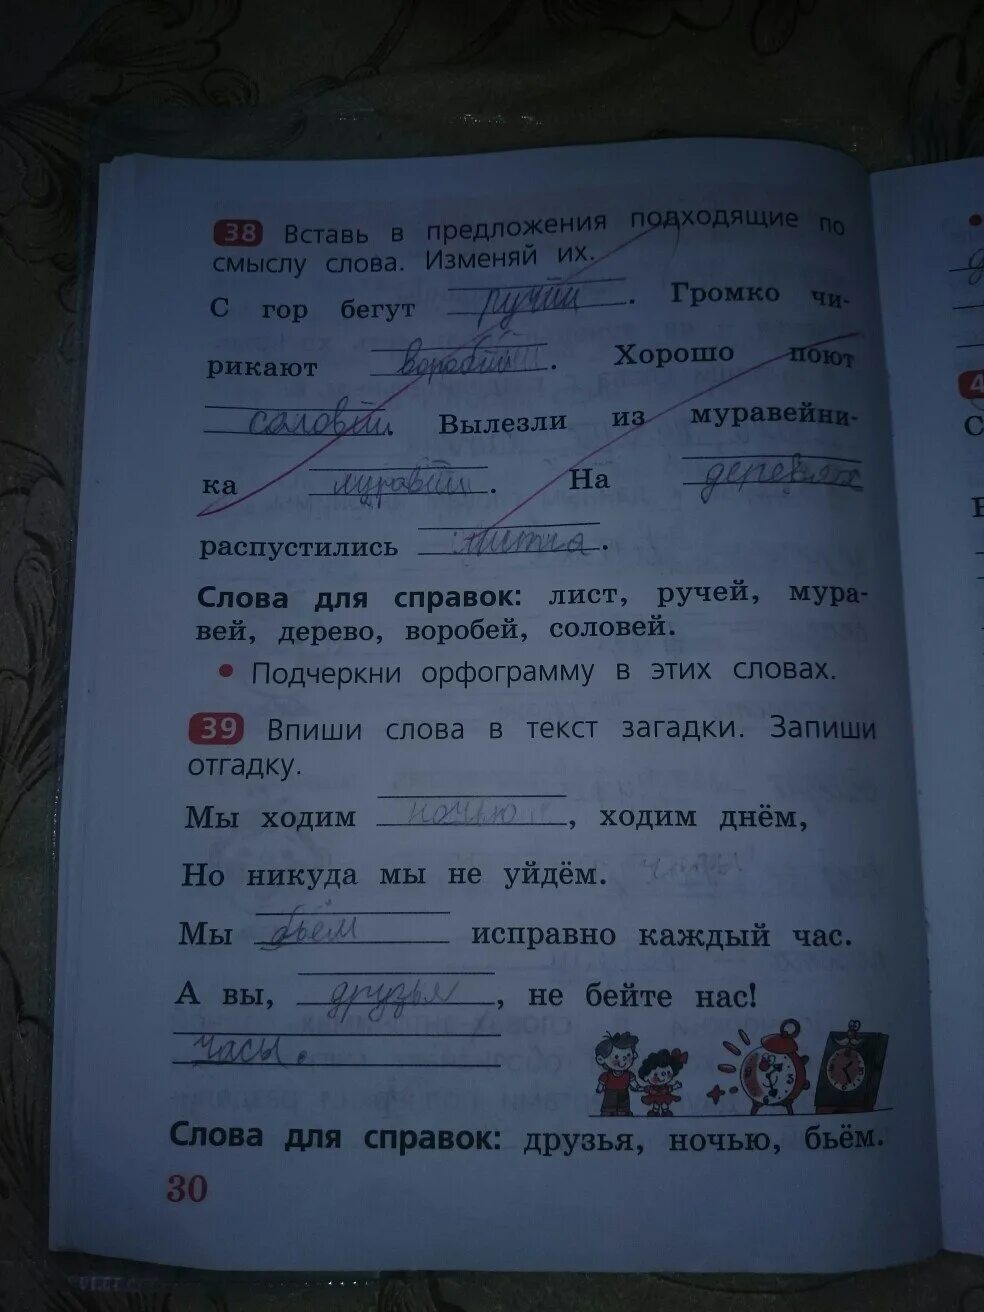 38 Вставь в предложения подходящие по
смыслу слова. Изменяй их.
С гор бегут ручьи. Громко чи-
рикают воробьи. Хорошо поют
саловьи. Вылезли из муравейни-
ка муравьи. На деревях
распустились .
Слова для справок: лист, ручей, мура-
вей, дерево, воробей, соловей.
• Подчеркни орфограмму в этих словах.
39 Впиши слова в текст загадки. Запиши
отгадку.
Мы ходим ночью, ходим днём,
Но никуда мы не уйдём.
Мы бьём исправно каждый час.
А вы, друзья, не бейте нас!
часы.
Слова для справок: друзья, ночью, бьём.
30